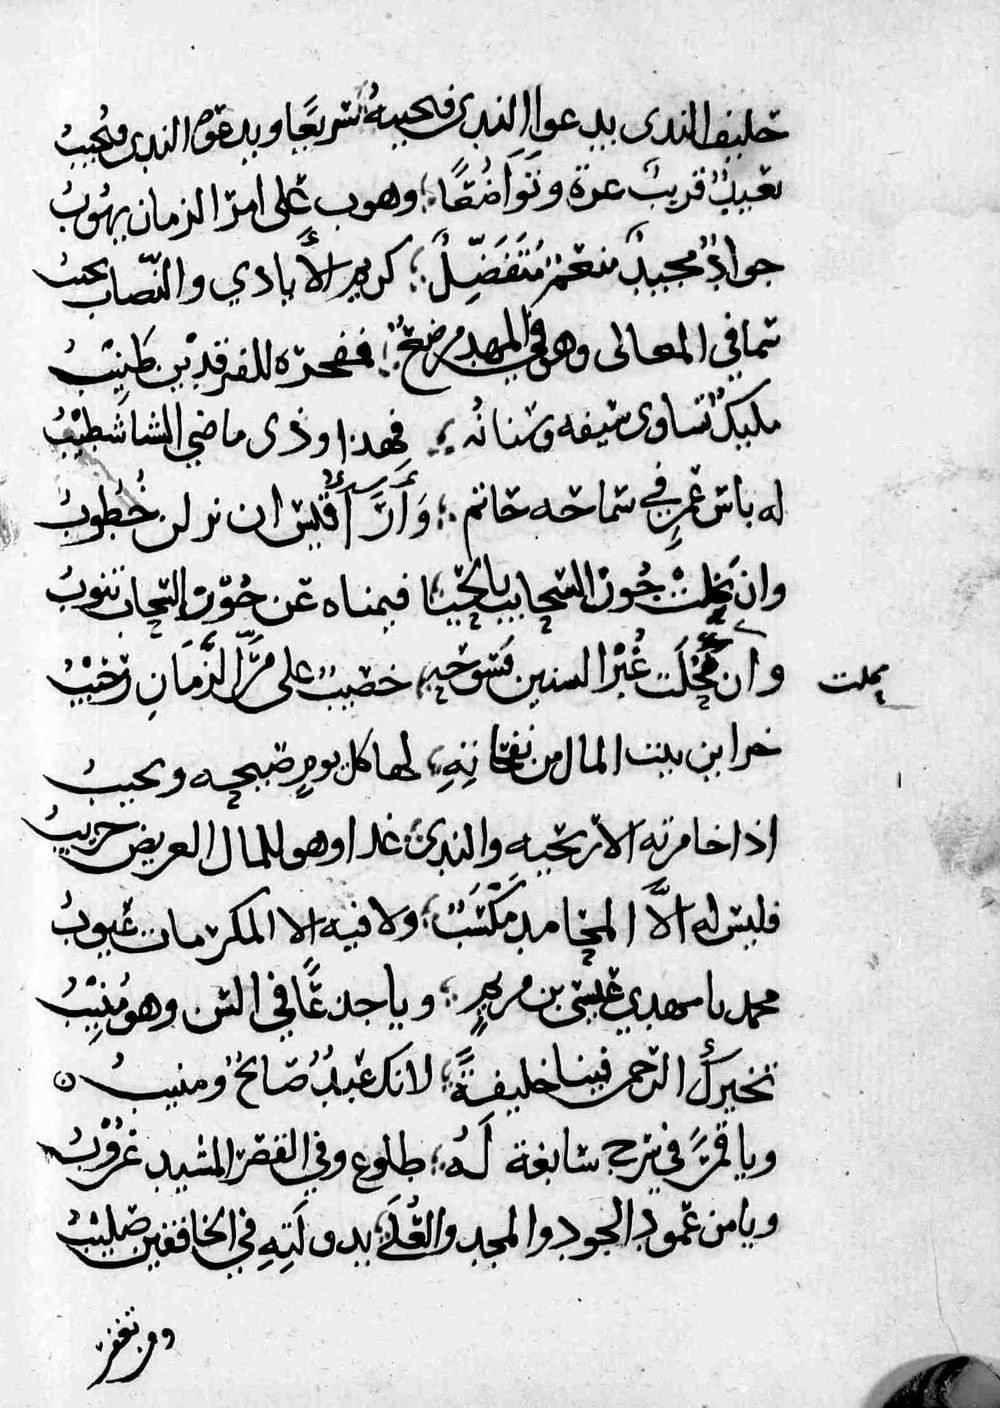 حليف الندى يدعوا الندى فيجيبه سريعا ويدعوه الندى فيجيب
بعيد قريب عزة وتواضعا وهوب على امر الزمان يهوب
جواد مجيد منعم متفضل كريم الأيادي والنصاب نجيب
سما في المعالى وهو في المهد مرضع ففخره للفرقدين طنيب
مليك تساوى سيفه وسنانه فهذا وذى ماضي الشبا شطيب
له باس عمر في سماحه حاتم ورأي أقيس ان نزلن خطوب
وان بخلت جون السحايب بالحيا فيمناه عن جون السحاب تنوب
وان محلت غبر السنين فسوحه خصيب على مر الزمان رحيب
محلت
خرا ابن بيت المال من نفحاته لها كل يوم صيحه ونحيب
اذا خامرته الاريحيه والندى غدا وهو للمال العريض حريب
فليس له الا المحامد مكسب ولا فيه الا المكرمات عيوب
محمد يا مهدي عيسى بن مريم ويا جدعا في السن وهو منيب
تخيرك الرحمن فينا خليفة لانك عبد صالح ومنيب
ويا قمرا في برج سابغة له طلوع وفي القصر المشيد غروب
ويا من عمود الجود والمجد والعلى بدولته في الخافقين صليب